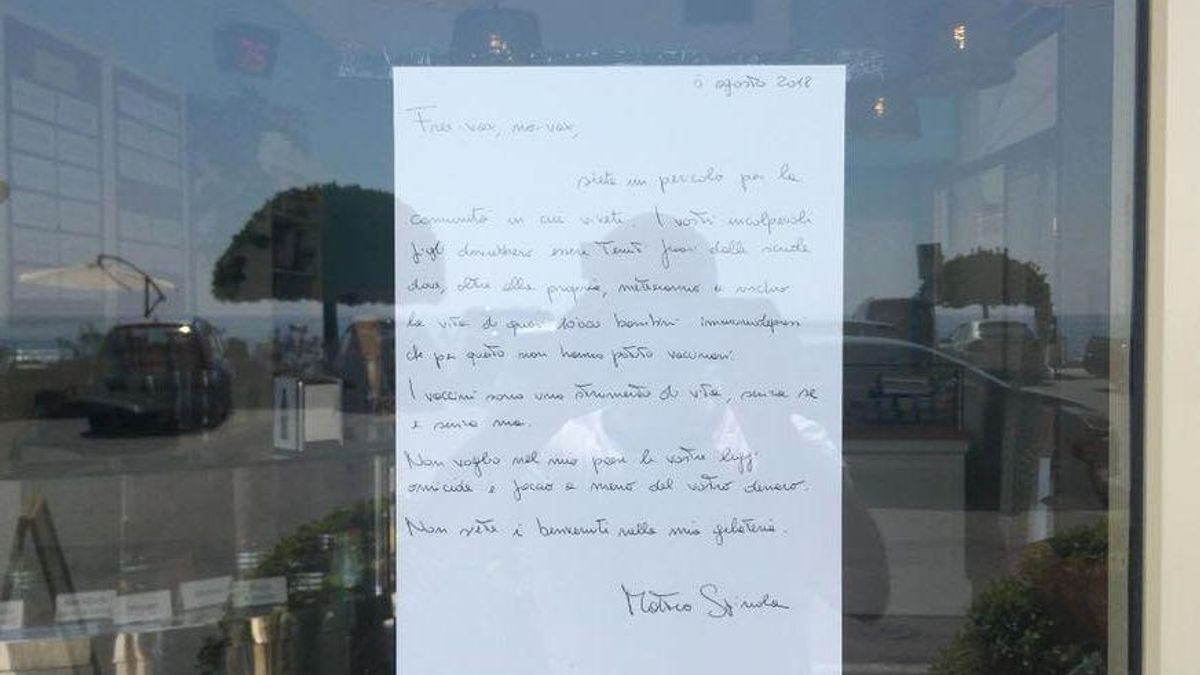 6 agosto 2018
Free-vax, no-vax,
siete un pericolo per la
comunità in cui vivete. I vostri incolpevoli
figli dovrebbero essere tenuti fuori dalle scuole
dove, oltre alla propria, metteranno a rischio
la vita di quei bambini immunodepressi
che per questo non hanno potuto vaccinarsi.
I vaccini sono uno strumento di vita, senza se
e senza ma.
Non voglio nel mio paese le vostre leggi
omicide e faccio a meno del vostro denaro.
Non siete i benvenuti nella mia gelateria.
Matteo Spinola